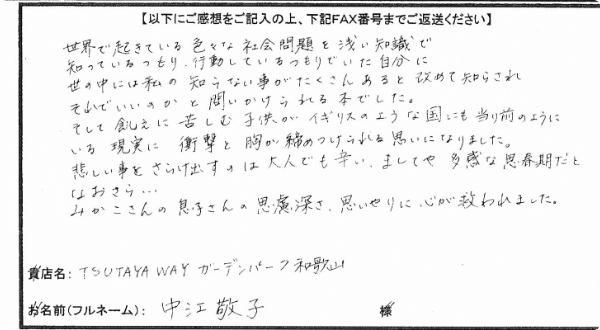 【以下にご感想をご記入の上、下記FAX番号までご返送ください】
世界で起きている色々な社会問題を浅い知識で
知っているつもり、行動しているつもりでいた自分に
世の中には私の知らない事がたくさんあると改めて知らされ
それでいいのかと問いかけられる本でした。
そして飢えに苦しむ子供がイギリスのような国にも当り前のように
いる現実に衝撃と胸が締めつけられる思いになりました。
悲しい事をさらけ出すのは大人でも辛い、ましてや多感な思春期だと
なおさら…
みかこさんの息子さんの思慮深さ、思いやりに心が救われました。
貴店名：TSUTAYA WAY ガーデンパーク和歌山
お名前(フルネーム)：中江敬子 様